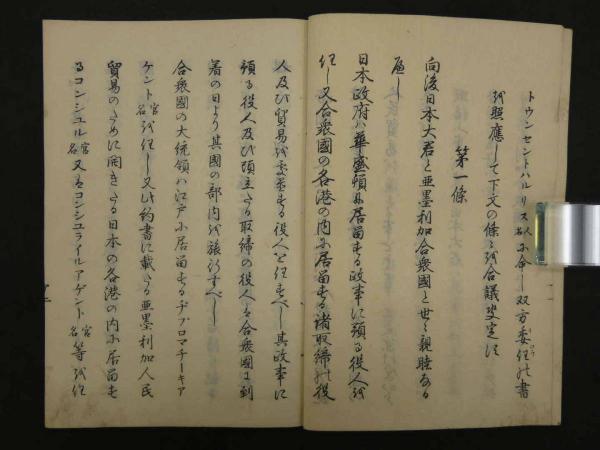 トウンセントハルリス人名に命し双方委任の書
を照應して下文の條々を合議决定す
第一條
向後日本大君と亜墨利加合衆國と世々親睦なる
へし
日本政府ハ華盛頓に居留する政事に預る役人を
任し又合衆國の各港の内に居留する諸取締の役
人及ひ貿易を處置する役人を任すへし其政事に
預る役人及ひ頭立たる取締の役人ハ合衆國に到
着の日より其國の部内を旅行すへし
合衆國の大統領ハ江戸に居留するヂプロマチーキア
ケント官名を任し又此約書に載る亜墨利加人民
貿易のために開きたる日本の各港の内に居留す
るコンシユル官名又ハコンシユライルアゲント官名等を任